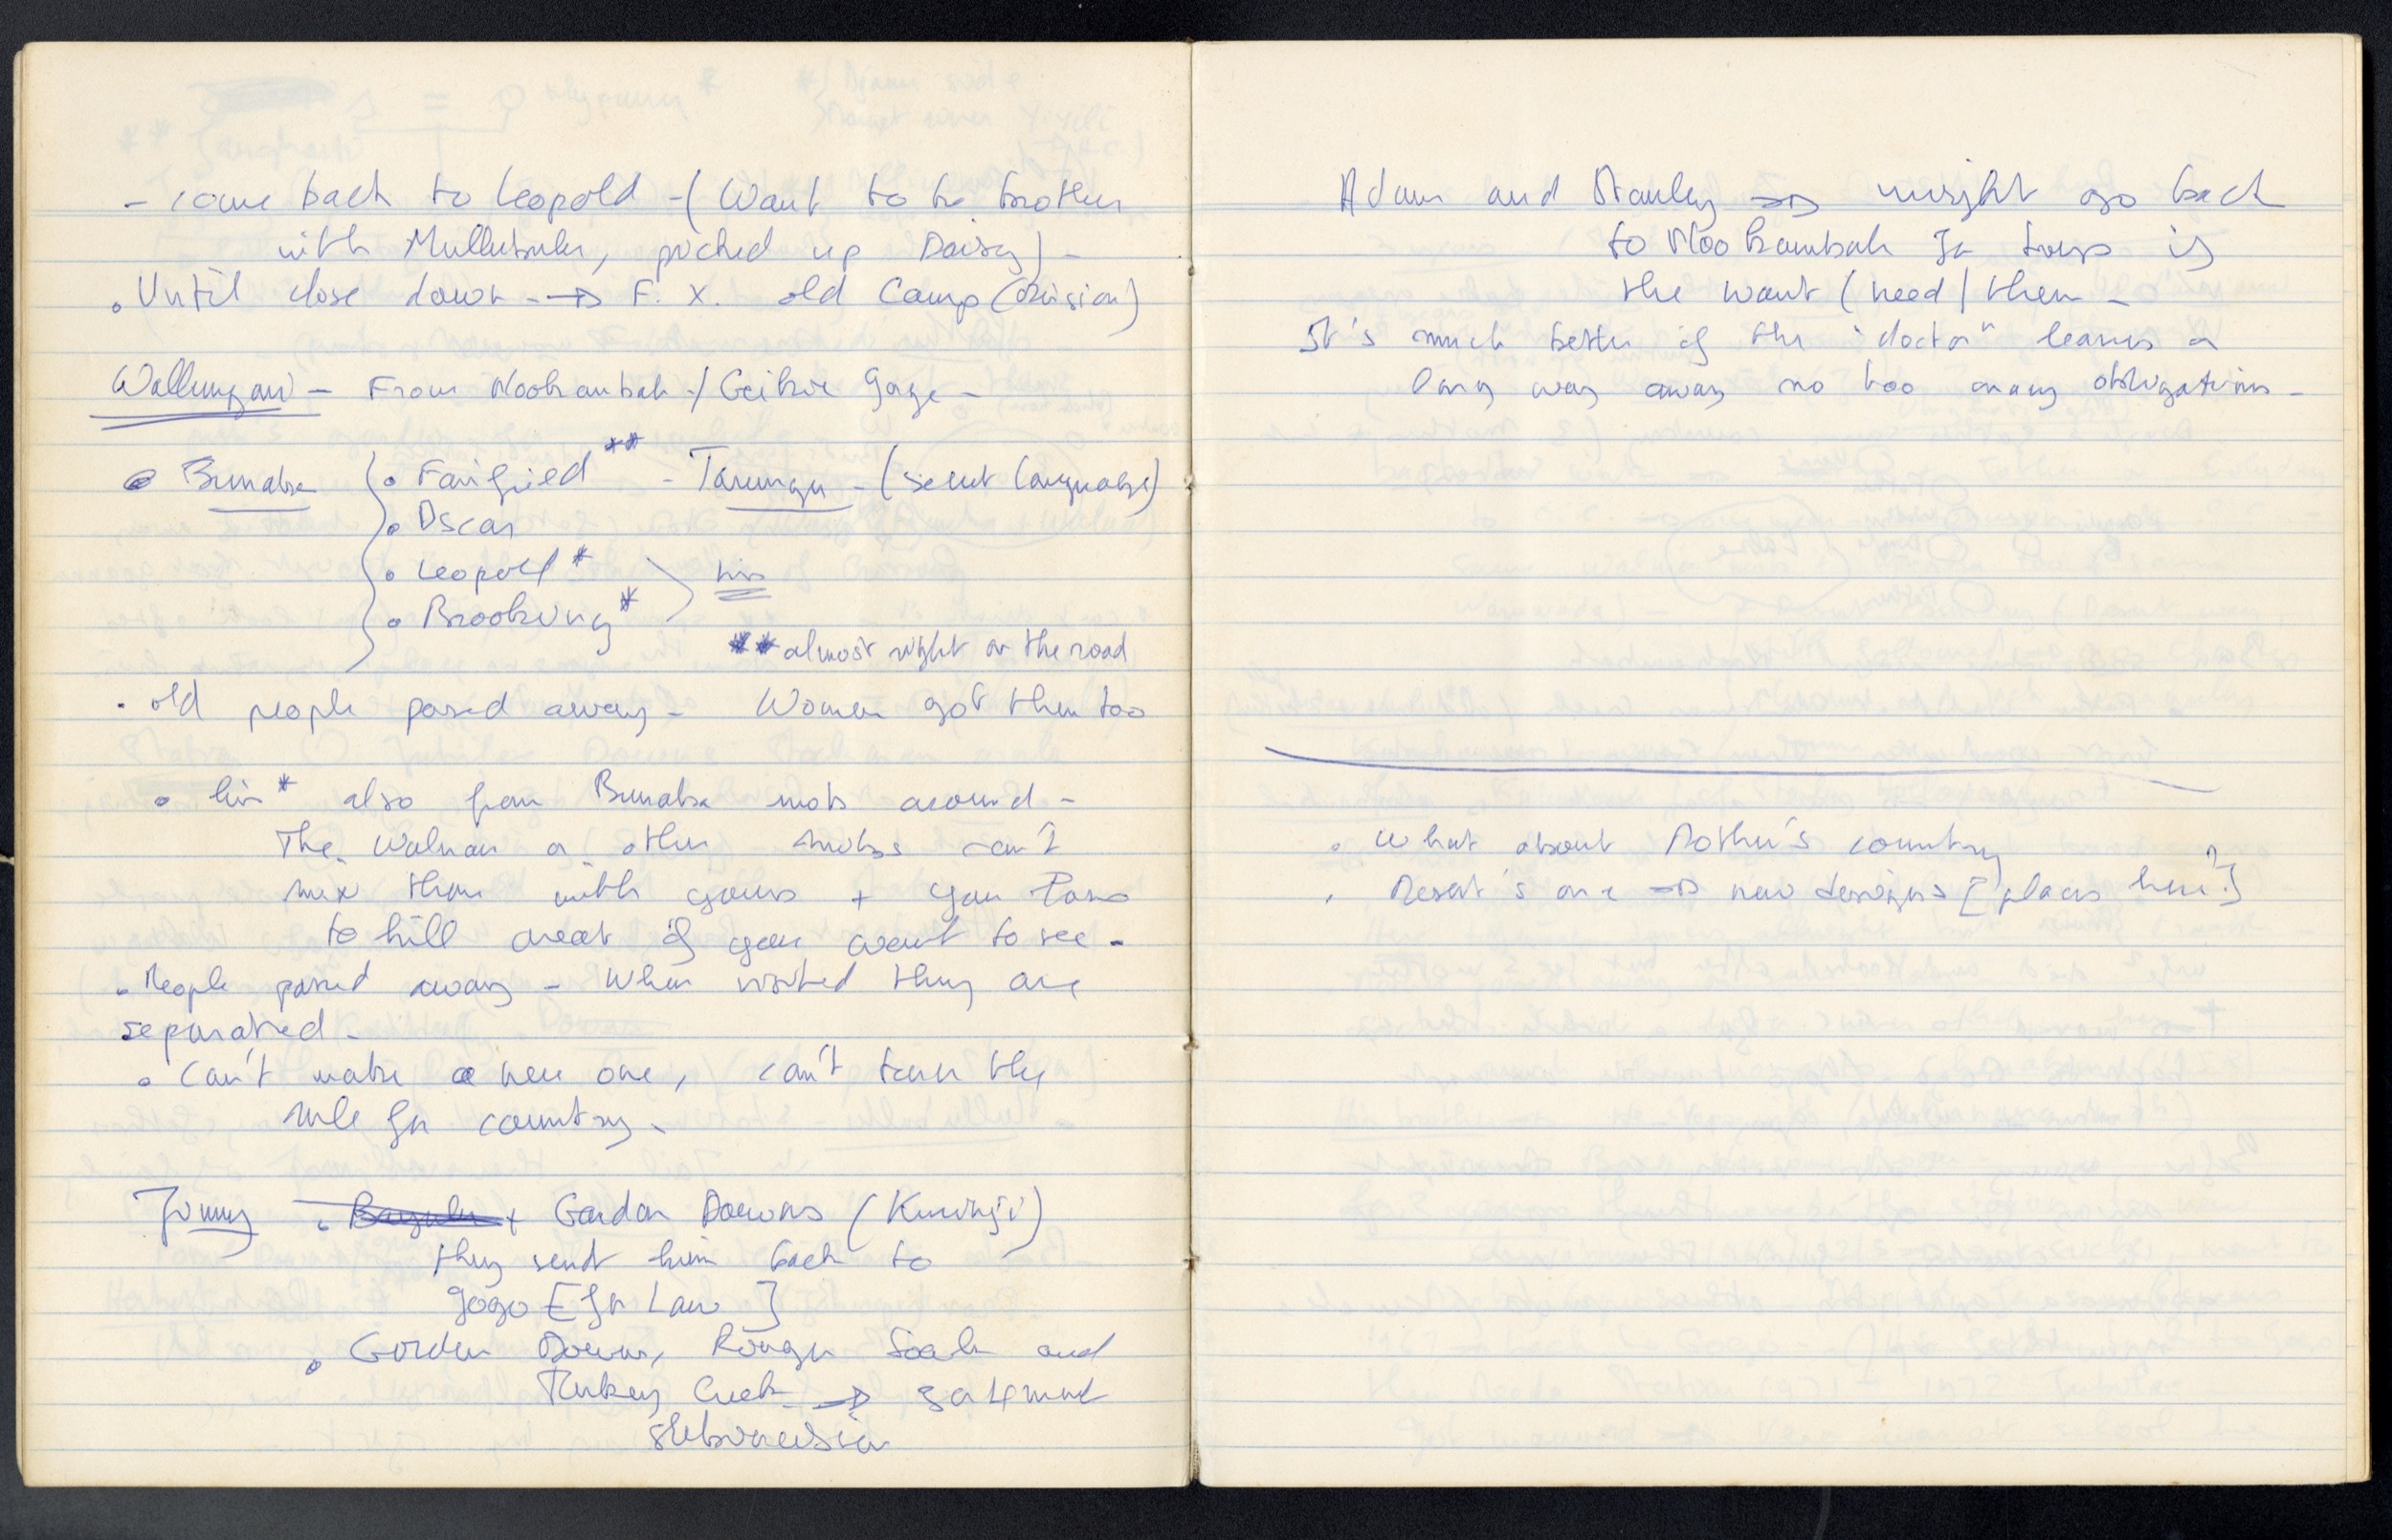 - came back to Leopold - (Want to he brother
with Mullubulu, picked up Daisy) -
. Until close down - → F. X. old Camp (division)
Wallungari - From Nookanbah / Geikie Gorge -
• Bunaba { • Fairfield ** - Tarungu - (secret language)
• Oscar
• Leopold *
• Brooking * > his
** almost right on the road
. old people passed away - Women got them too
• his * also from Bunaba mob around -
The Walmar or other mobs can't
mix them with yours + you
to kill meat if you want to see -
. People passed away - When visited they are
separated -
• Can't make a new one, can't turn the
rule for country -
Jimmy • + Gordon Downs (Kurinji)
they sent him back to
GoGo [for Law]
• Gordon Downs, Ringer Soak and
Turkey Creek → different

Adam and Stanley → might go back
to Nookanbah for this is
the want (need) them -
It's much better if the "doctor" learns a
long way away no too many obligations -
• What about Mother's country
. Desert's one → new designs [places here?]